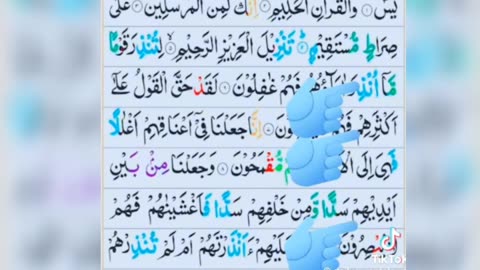 يٰسٓ ۚ وَالْقُرْاٰنِ الْحَكِيْمِ ۙ اِنَّكَ لَمِنَ الْمُرْسَلِيْنَ ۙ عَلٰى
صِرَاطٍ مُّسْتَقِيْمٍ ؕ تَنْزِيْلَ الْعَزِيْزِ الرَّحِيْمِ ۙ لِتُنْذِرَ قَوْمًا
مَّاۤ اُنْذِرَ اٰبَآؤُهُمْ فَهُمْ غٰفِلُوْنَ لَقَدْ حَقَّ الْقَوْلُ عَلٰۤى
اَكْثَرِهِمْ فَهُمْ اِنَّا جَعَلْنَا فِيْۤ اَعْنَاقِهِمْ اَغْلٰلًا
فَهِىَ اِلَى مُّقْمَحُوْنَ وَجَعَلْنَا مِنْۢ بَيْنِ
اَيْدِيْهِمْ سَدًّا وَّمِنْ خَلْفِهِمْ سَدًّا فَاَغْشَيْنٰهُمْ فَهُمْ
ءَاَنْذَرْتَهُمْ اَمْ لَمْ تُنْذِرْهُمْ
TikTok